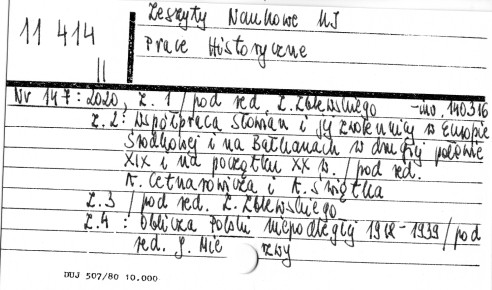 Zeszyty Naukowe UJ
11 414
Prace Historyczne
II
Nr 147: 2020, z. 1 / pod red. Z. Zblewskiego - inw. 140316
z. 2: Współpraca Słowian i jej zwolennicy w Europie
Środkowej i na Bałkanach w drugiej połowie
XIX i na początku XX w. / pod red.
A. Cetnarowicza i A. Świątka
z. 3 / pod red. Z. Zblewskiego
z. 4: Oblicza Polski niepodległej 1918-1939 / pod
red. J. Mie zwy
DUJ 507/80 10.000